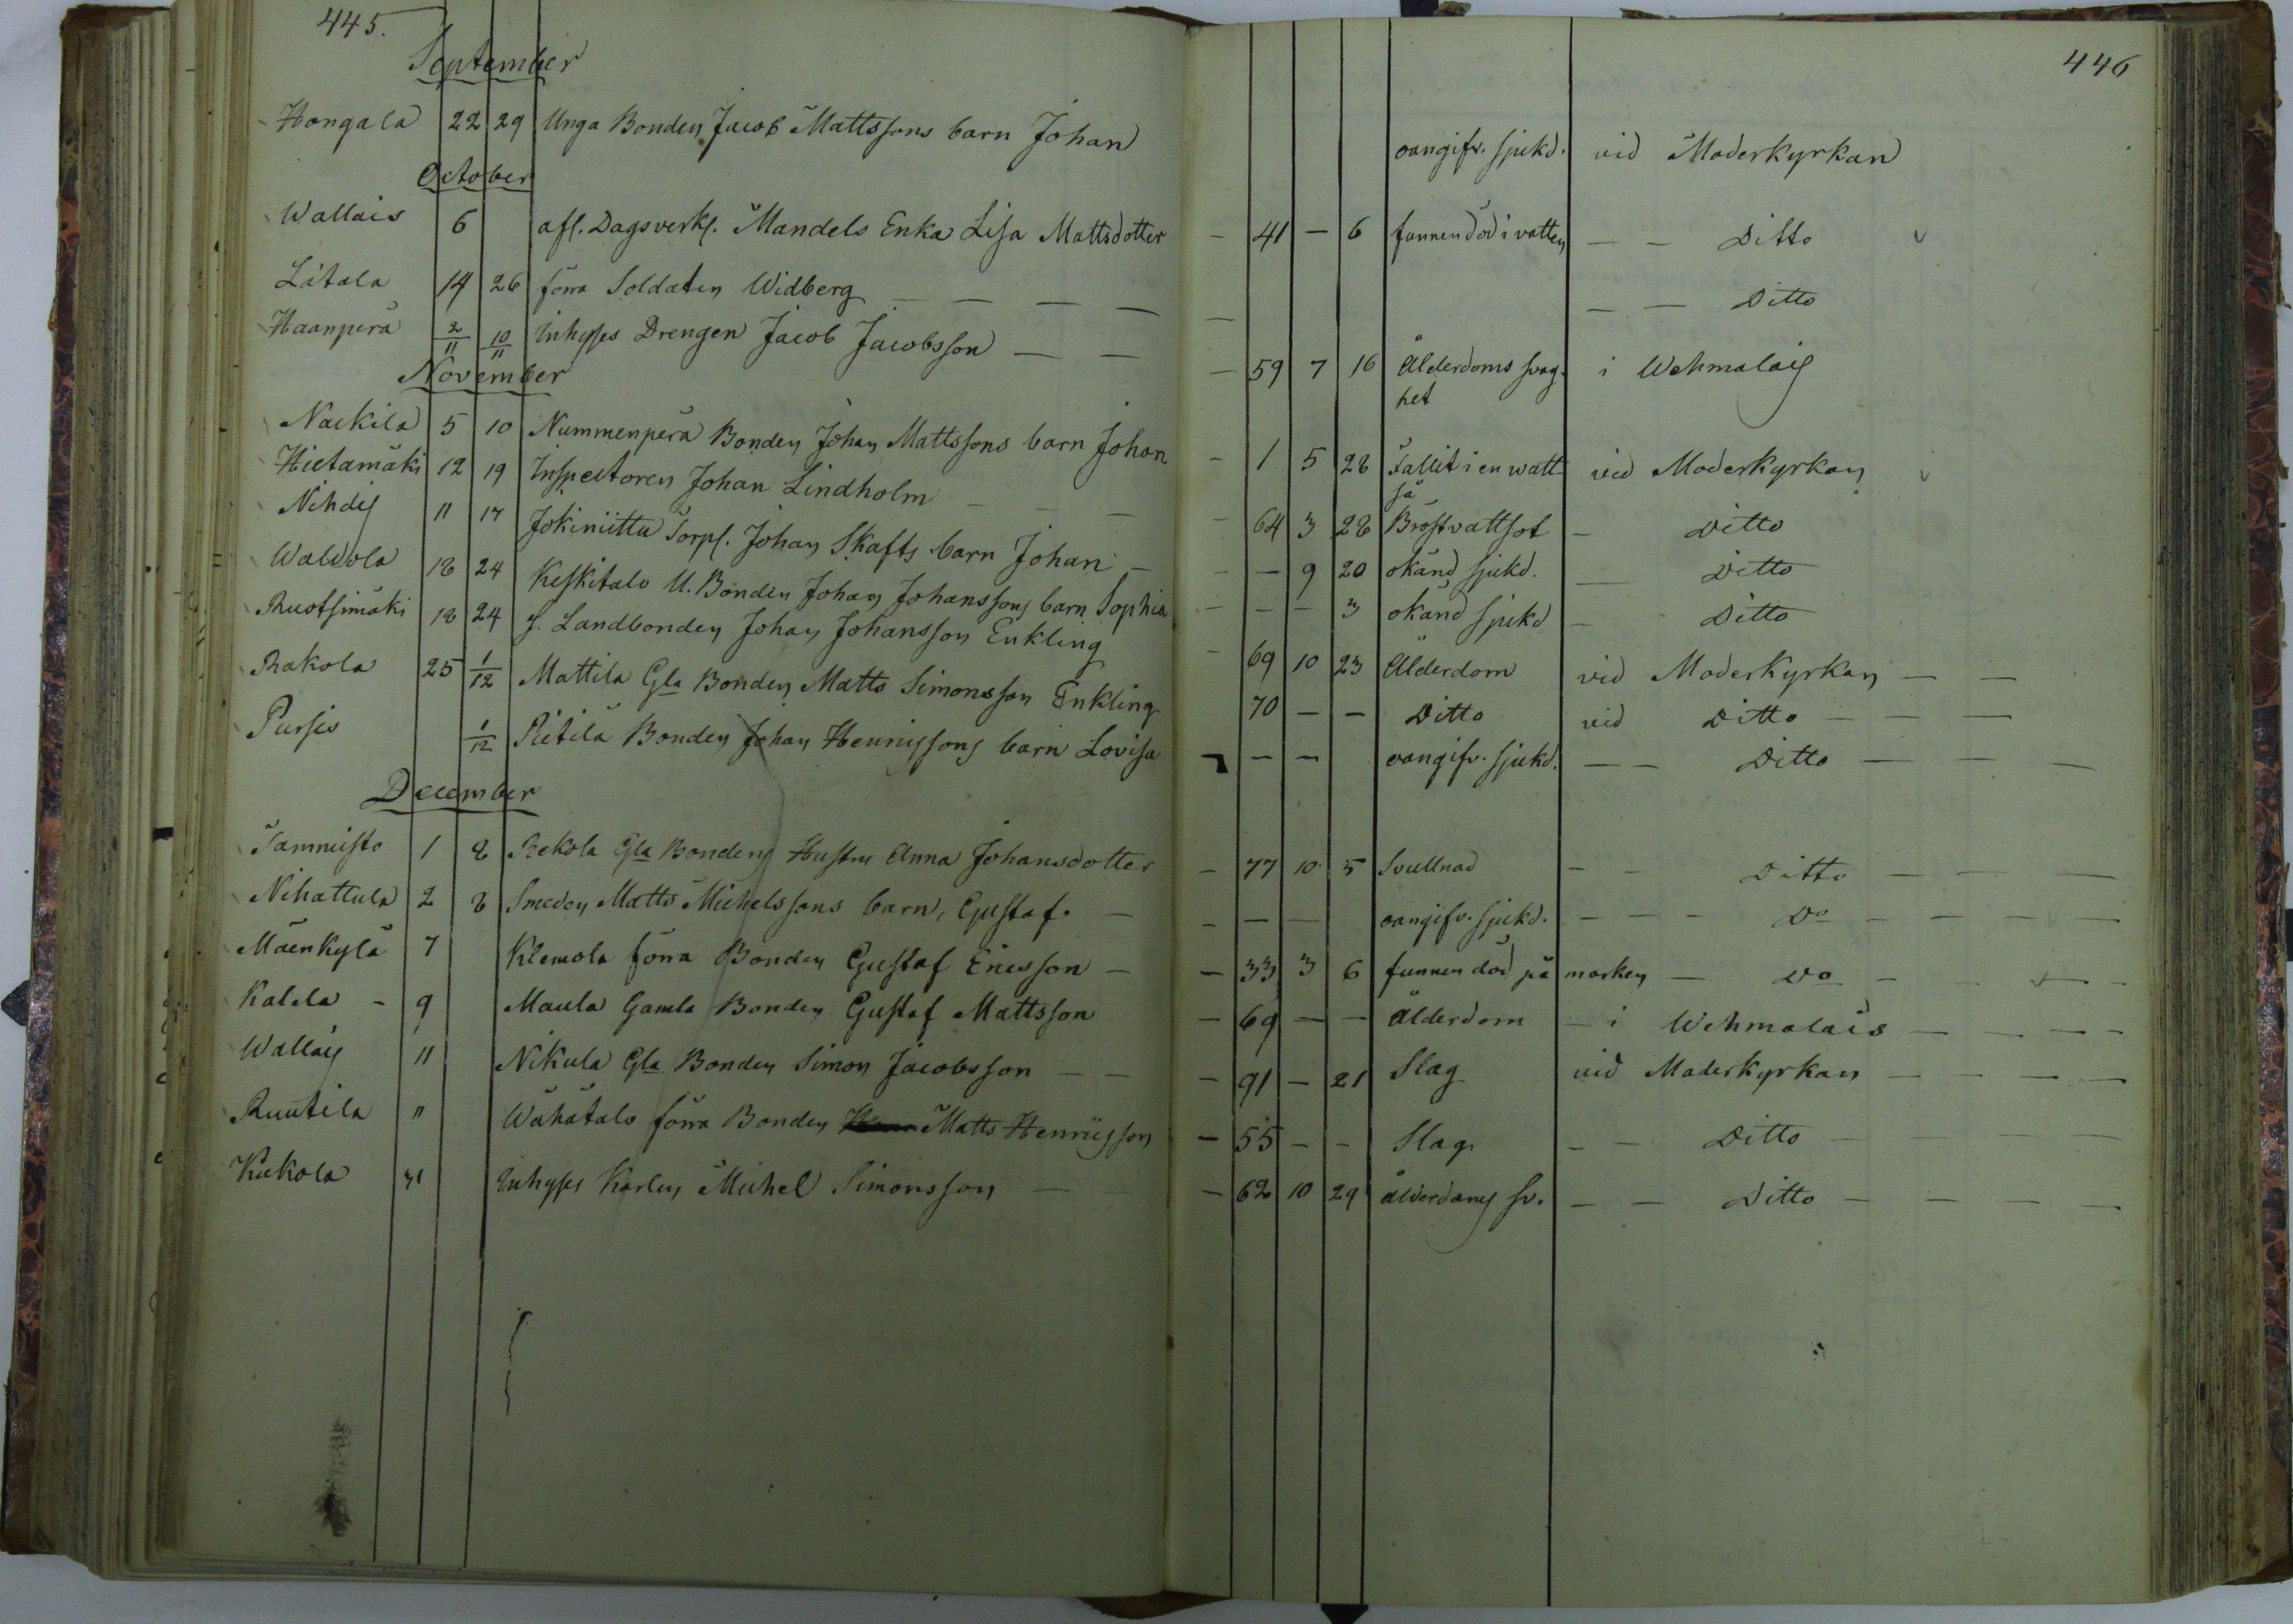 445.
446
September
Hongala 22 29 Unga Bonden Jacob Mattssons barn Johan oangifv. sjukd. vid Moderkyrkan
October
Wallais 6 afl. Dagsverk. Mandels Enka Lisa Mattsdotter — 41 — 6 funnen död i vatten — — Ditto
Lätala 14 26 förra Soldaten Widberg — — — — — — — Ditto
Haanperä 2/11 10/11 Inhyses Drengen Jacob Jacobsson — — — 59 7 16 Ålderdoms svag-
het i Wehmalais
November
Nackila 5 10 Nummenperä Bonden Johan Mattssons barn Johan — 1 5 28 Fallit i en watt vid Moderkyrkan
Hietamäki 12 19 Inspectoren Johan Lindholm — — — — 64 3 28 Bröstvattsot — Ditto
Nihdis 11 17 Jokiniittu Torp. Johan Skafts barn Johan — — — 9 20 okänd sjukd. — Ditto
Waldola 18 24 Keskitalo U. Bonden Johan Johanssons barn Sophia — — — 3 okänd sjukd — Ditto
Ruotsimäki 18 24 f. Landbonden Johan Johansson Enkling — 69 10 23 Ålderdom vid Moderkyrkan — —
Rakola 25 1/12 Mattila Gla Bonden Matts Simonsson Enkling 70 — — Ditto vid Ditto — — —
Pursis 1/12 Pietilä Bonden Johan Henrissons barn Lovisa — — — oangifv. sjukd. — — Ditto — — —
December
Tammisto 1 8 Rekola Gla Bondens Hustru Anna Johansdotter — 77 10 5 Svullnad — — Ditto — — —
Nihattula 2 8 Smeden Matts Michelssons barn, Gustaf. — — — — oangifv. sjukd. — — — Do — — — —
Mäenkylä 7 Klemola förra Bonden Gustaf Ericsson — — 33 3 6 funnen död på marken — Do — — —
Kalela - 9 Maula Gamla Bonden Gustaf Mattsson — 69 — — Ålderdom — i Wehmalais — — — —
Wallais 11 Nikula Gla Bonden Simon Jacobsson — — — 91 — 21 Slag vid Moderkyrkan — — — —
Ruutila " Wähätalo förra Bonden Matts Henricsson — 55 — — Slag — — Ditto — — — —
Kukola 31 Inhyses Karlen Michel Simonsson — — — 62 10 29 ålderdoms sv. — — Ditto — — — —